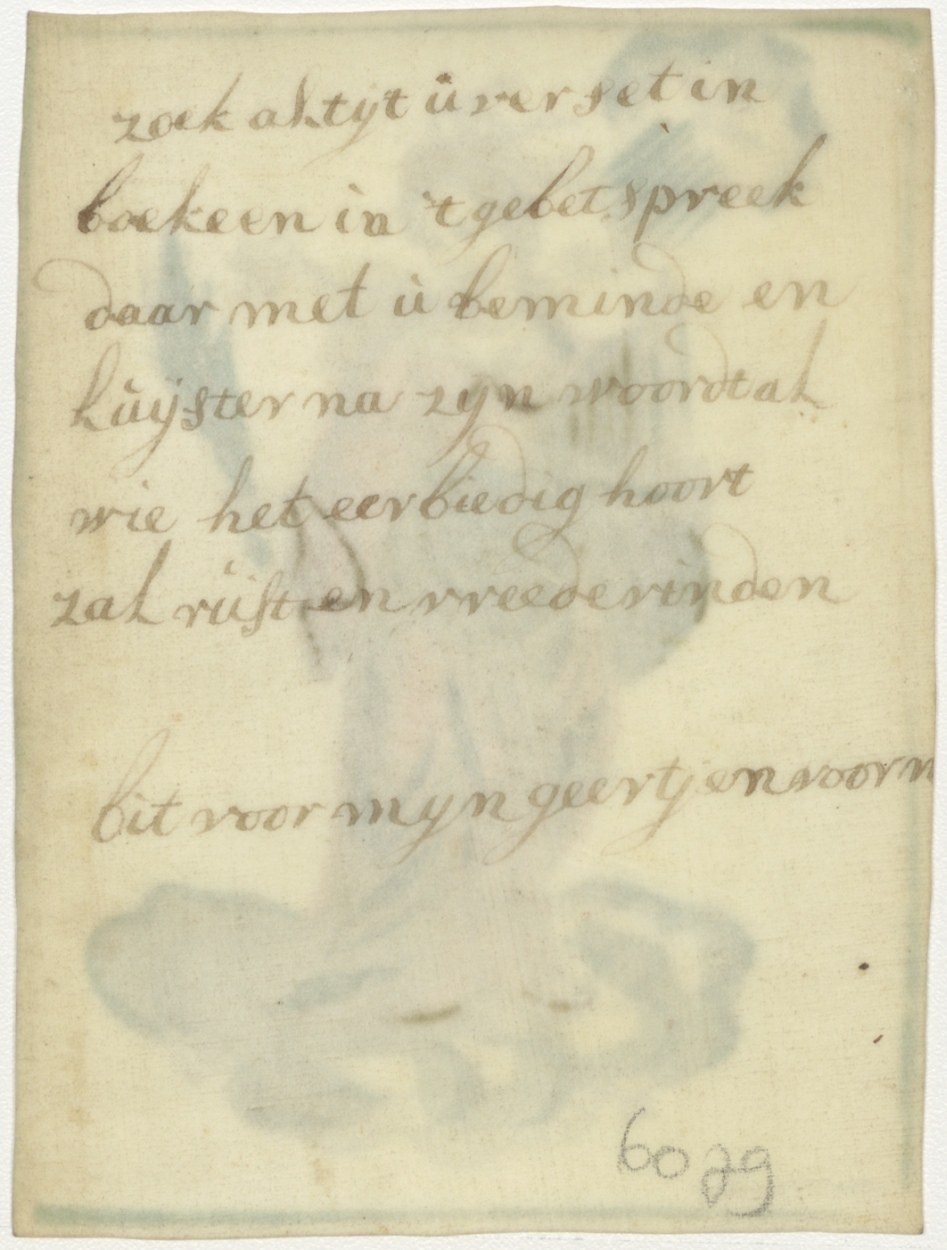 zoek altyt ù verset in
boeke en in 't gebet spreek
daar met ù beminde en
lùyster na zyn woordt al
wie het eerbiedig hoort
zal rùst en vreede vinden
bit voor myn geertjen voorn
6029